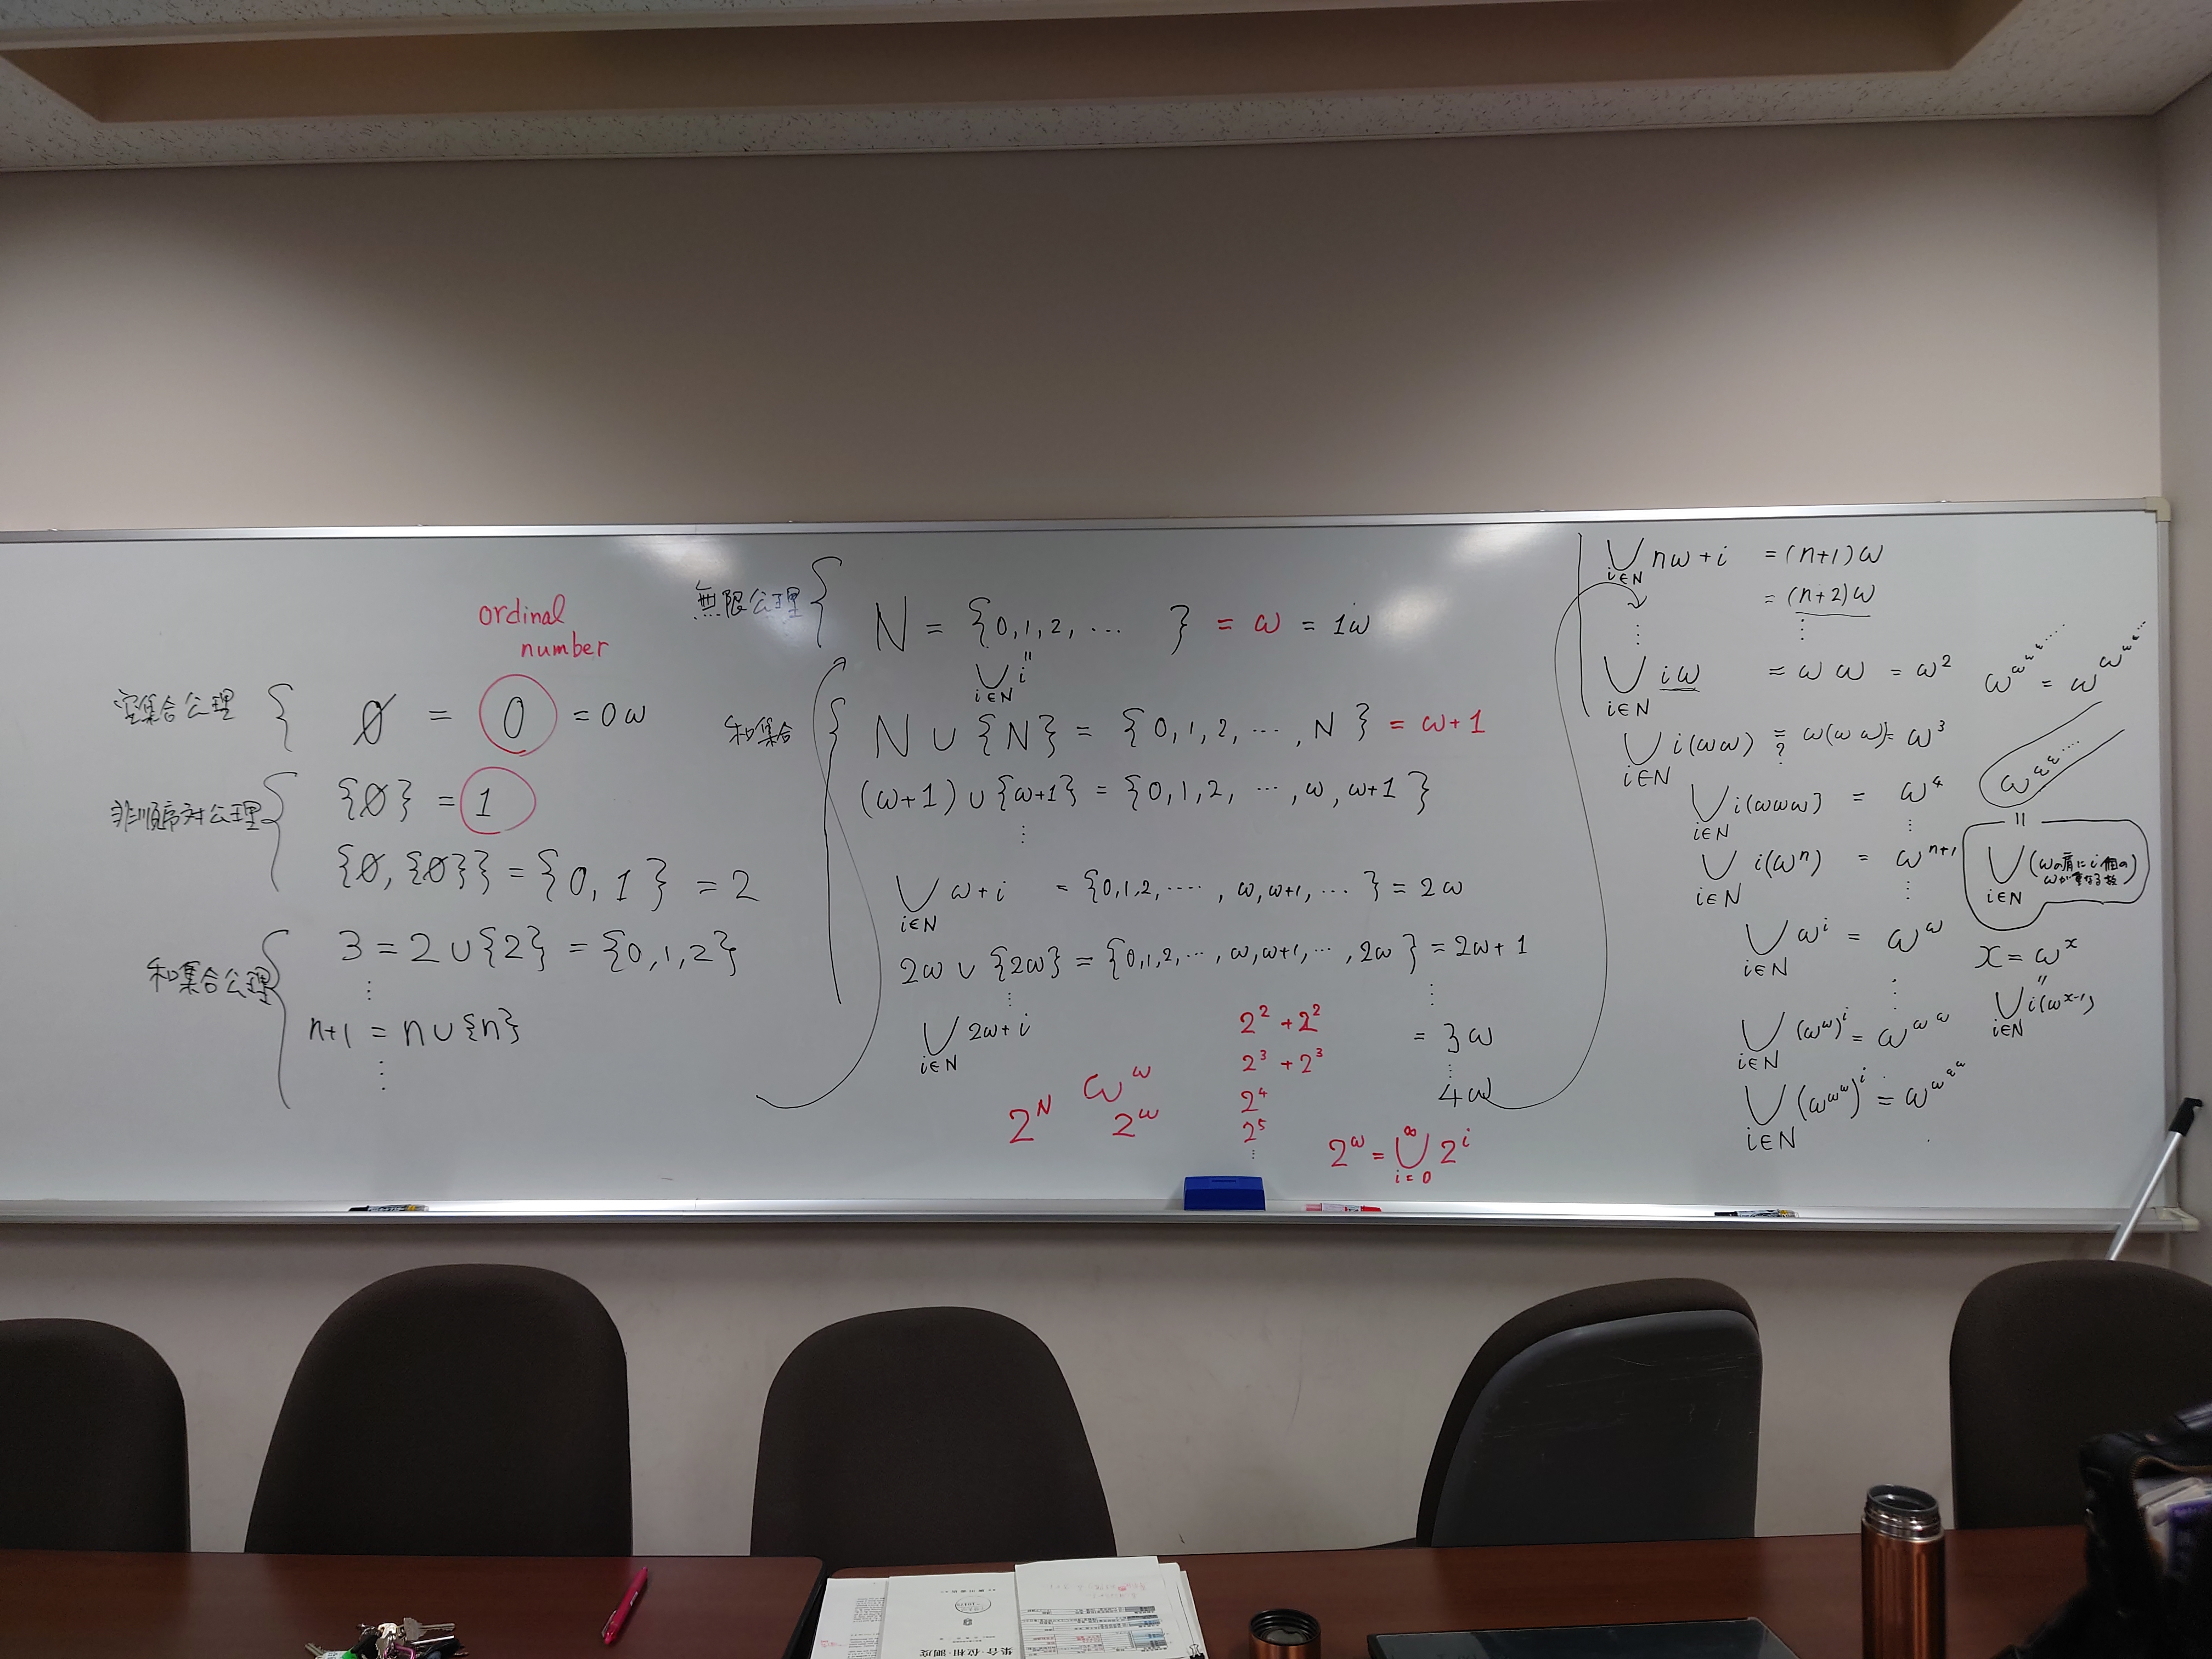 ordinal
number
空集合公理 { ∅ = 0 = 0ω
非順序対公理 { {∅} = 1
{∅, {∅}} = {0, 1} = 2
和集合公理 { 3 = 2 ∪ {2} = {0, 1, 2}
⋮
n+1 = n ∪ {n}
⋮
無限公理 { N = {0, 1, 2, … } = ω = 1ω
||
⋃ i
i∈N
和集合 { N ∪ {N} = {0, 1, 2, …, N} = ω+1
(ω+1) ∪ {ω+1} = {0, 1, 2, …, ω, ω+1}
⋮
⋃ ω+i = {0, 1, 2, ……, ω, ω+1, …} = 2ω
i∈N
2ω ∪ {2ω} = {0, 1, 2, …, ω, ω+1, …, 2ω} = 2ω+1
⋮ ⋮
⋃ 2ω+i = 3ω
i∈N
⋮
4ω
2^N ω^ω
2^ω
2^2 + 2^2
2^3 + 2^3
2^4
2^5
⋮
2^ω = ⋃_{i=0}^{∞} 2^i
⋃ nω+i = (n+1)ω
i∈N
= (n+2)ω
⋮ ⋮
⋃ iω = ωω = ω^2
i∈N
⋃ i(ωω) = ω(ωω) = ω^3
i∈N ?
⋃ i(ωωω) = ω^4
i∈N ⋮
⋃ i(ω^n) = ω^{n+1}
i∈N ⋮
⋃ ω^i = ω^ω
i∈N
⋮
⋃ (ω^ω)^i = ω^{ω^ω}
i∈N
⋃ (ω^{ω^ω})^i = ω^{ω^{ω^ω}}
i∈N
ω^{ω^{ω^{ω^…}}} = ω^{ω^{ω^{ω^…}}}
ω^{ω^{ω^…}}
||
⋃ (ωの肩にi個の
ωが重なる数)
i∈N
x = ω^x
||
⋃ i(ω^{x-1})
i∈N
集合・位相・測度